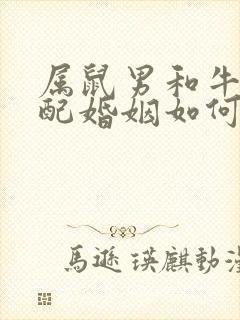 属鼠男和牛
配婚姻如何
馬遜瑛麒動漫